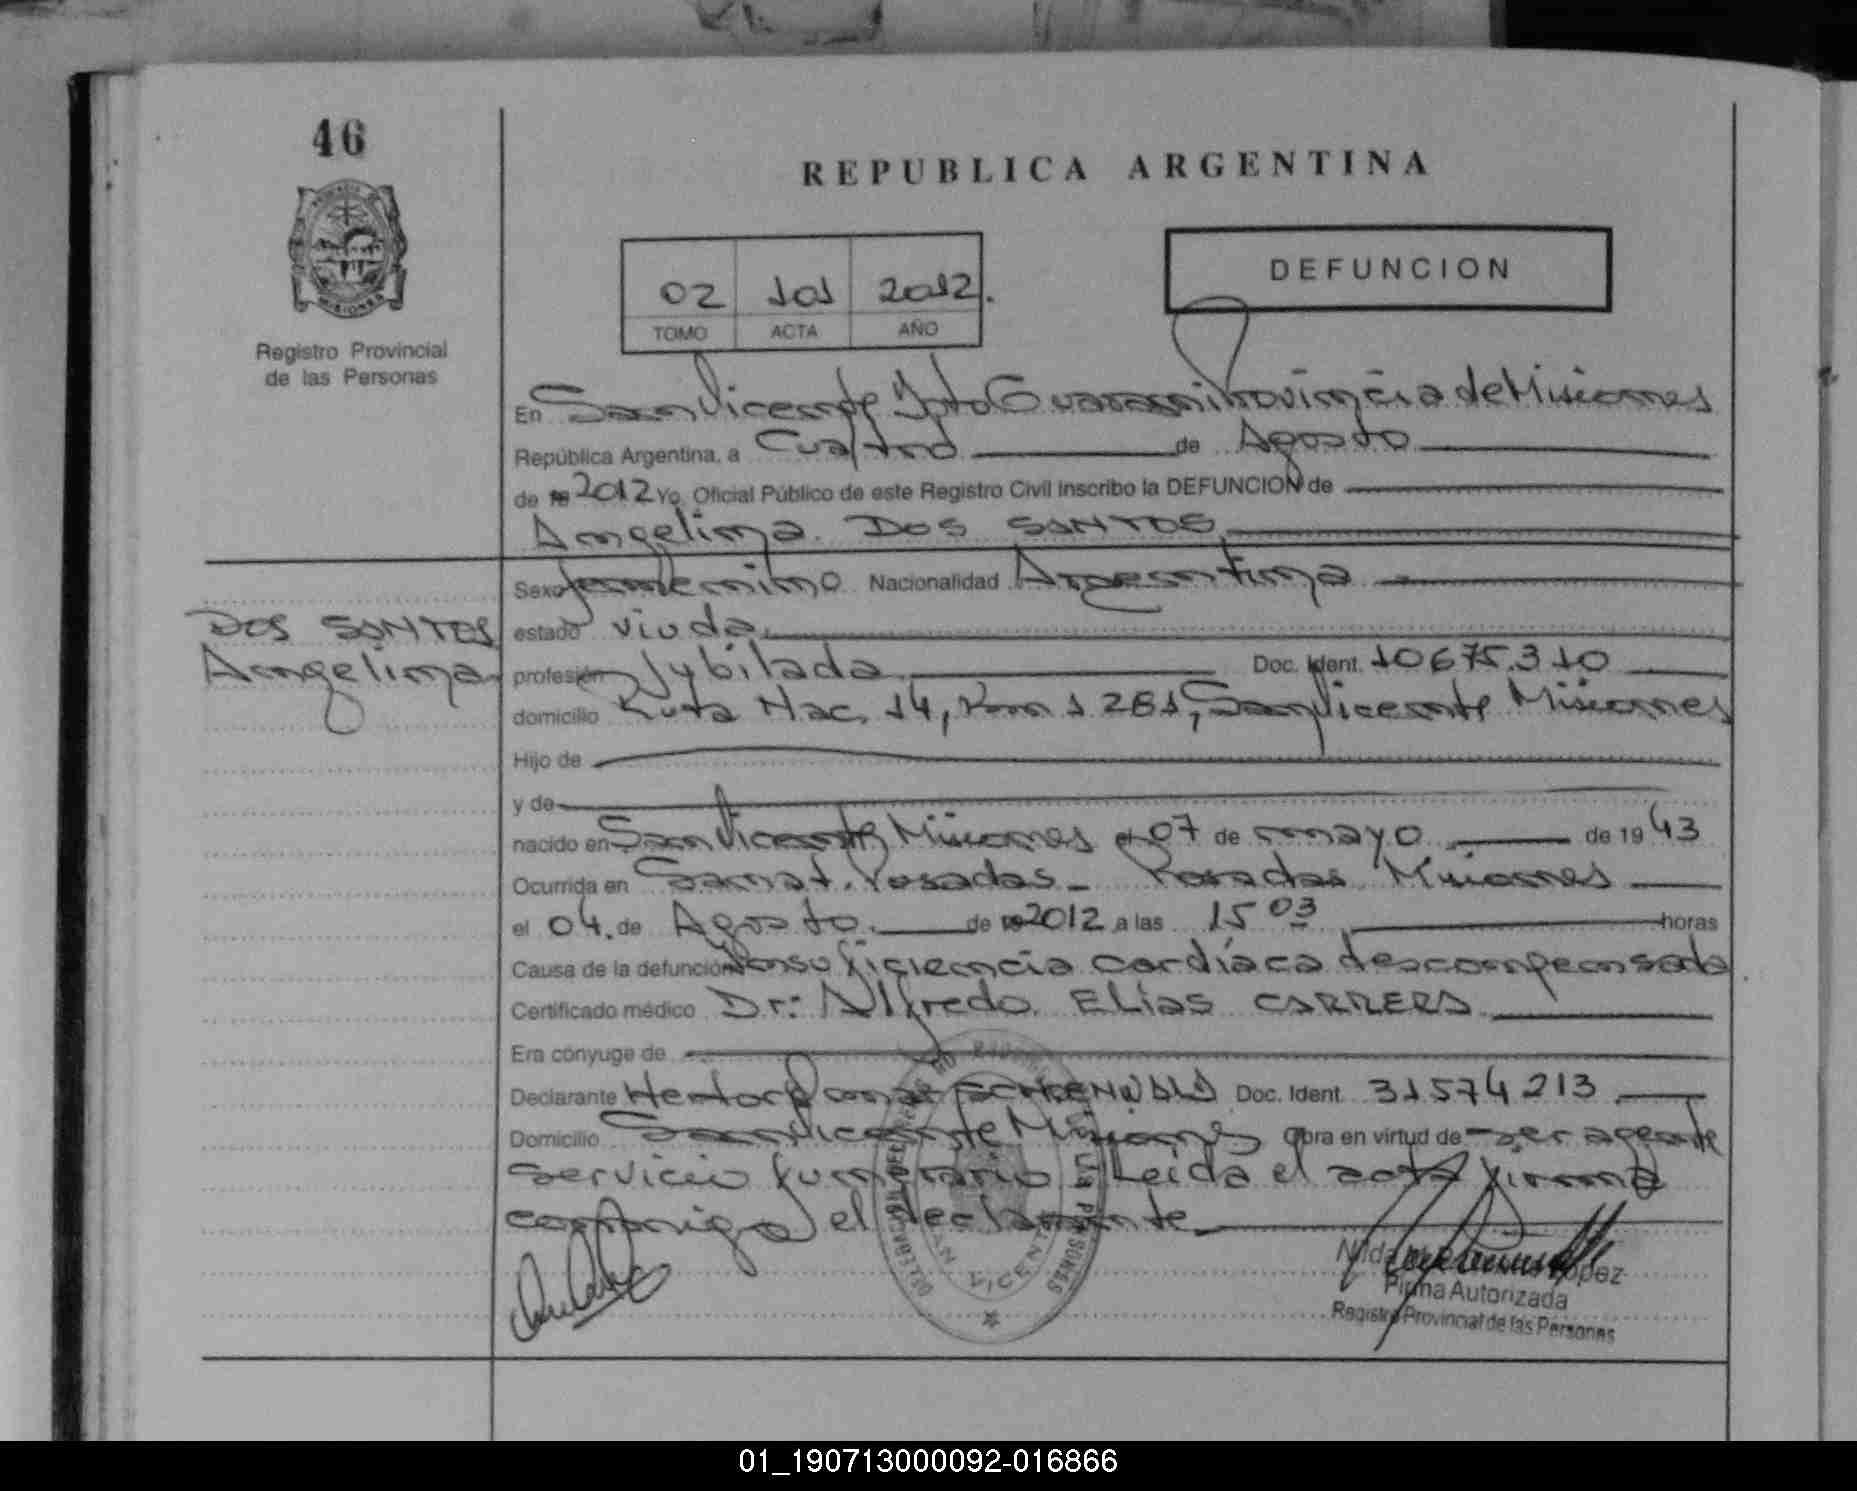 46
REPUBLICA ARGENTINA
MISIONES
Registro Provincial
de las Personas
DEFUNCION
02 101 2012.
TOMO ACTA AÑO
En San Vicente Dpto Guarani Provincia de Misiones
República Argentina, a Cuatro de Agosto
de 19 2012 Yo, Oficial Público de este Registro Civil inscribo la DEFUNCION de
Angelina DOS SANTOS
Sexo femenino Nacionalidad Argentina
DOS SANTOS
Angelina
estado viuda
profesión Jubilada Doc. Ident. 10675.310
domicilio Ruta Nac. 14, Km 1281, San Vicente Misiones
Hijo de
y de
nacido en San Vicente Misiones el 07 de mayo de 19 43
Ocurrida en Sanat. Posadas - Posadas Misiones
el 04. de Agosto. de 19 2012 a las 15 03 horas
Causa de la defunción Insuficiencia cardíaca descompensada.
Certificado médico Dr: Alfredo Elías CARRERA
Era cónyuge de
Declarante Hector Doc. Ident. 31574213
Domicilio San Vicente Misiones Obra en virtud de ser agente
servicio funerario Leida el acta firma
conmigo el declarante
DELEGACION DEL REGISTRO PROVINCIAL DE LAS PERSONAS
SAN VICENTE
Nilda López
Firma Autorizada
Registro Provincial de las Personas
01_190713000092-016866